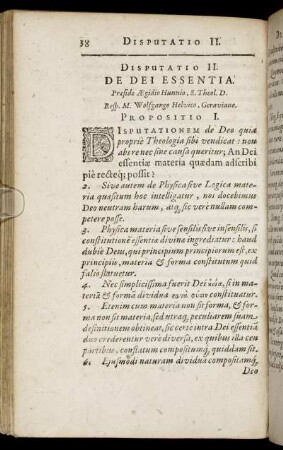 38 DISPUTATIO II.
DISPUTATIO II.
DE DEI ESSENTIA.
Præside Ægidio Hunnio, S. Theol. D.
Resp. M. Wolfgango Helvico, Goraviano.
PROPOSITIO I.
DISPUTATIONEM de Deo quiæ
propriè Theologia sibi vendicat: non
ab re nec sine causa quæritur, An Dei
essentiæ materia quædam adscribi
piè rectèq; possit?
2. Sive autem de Physica sive Logica mate-
ria quæsitum hoc intelligatur, nos docebimus
Deo neutram harum, atq; sic verè nullam com-
petere posse.
3. Physica materia sive sensilis sive insensilis, si
constitutionē essentiæ divinæ ingrediatur: haud
dubiè Deus, qui principium principiorum est, ex
principiis, materia & forma constitutum quid
falsò statuetur.
4. Nec simplicissima fuerit Dei ἐσία, si in ma-
teriā & formā dividua
constituatur.
5. Etenim cum materia non sit forma, & for-
ma non sit materia, sed utraq; peculiarem suam
definitionem obtineat, sic certè intra Dei essentiā
duo crederentur verè diversa, ex quibus illa ceu
partibus, constatum compositumq; quiddam sit.
6. Ejusmodi naturam dividua compositamq;
Deo